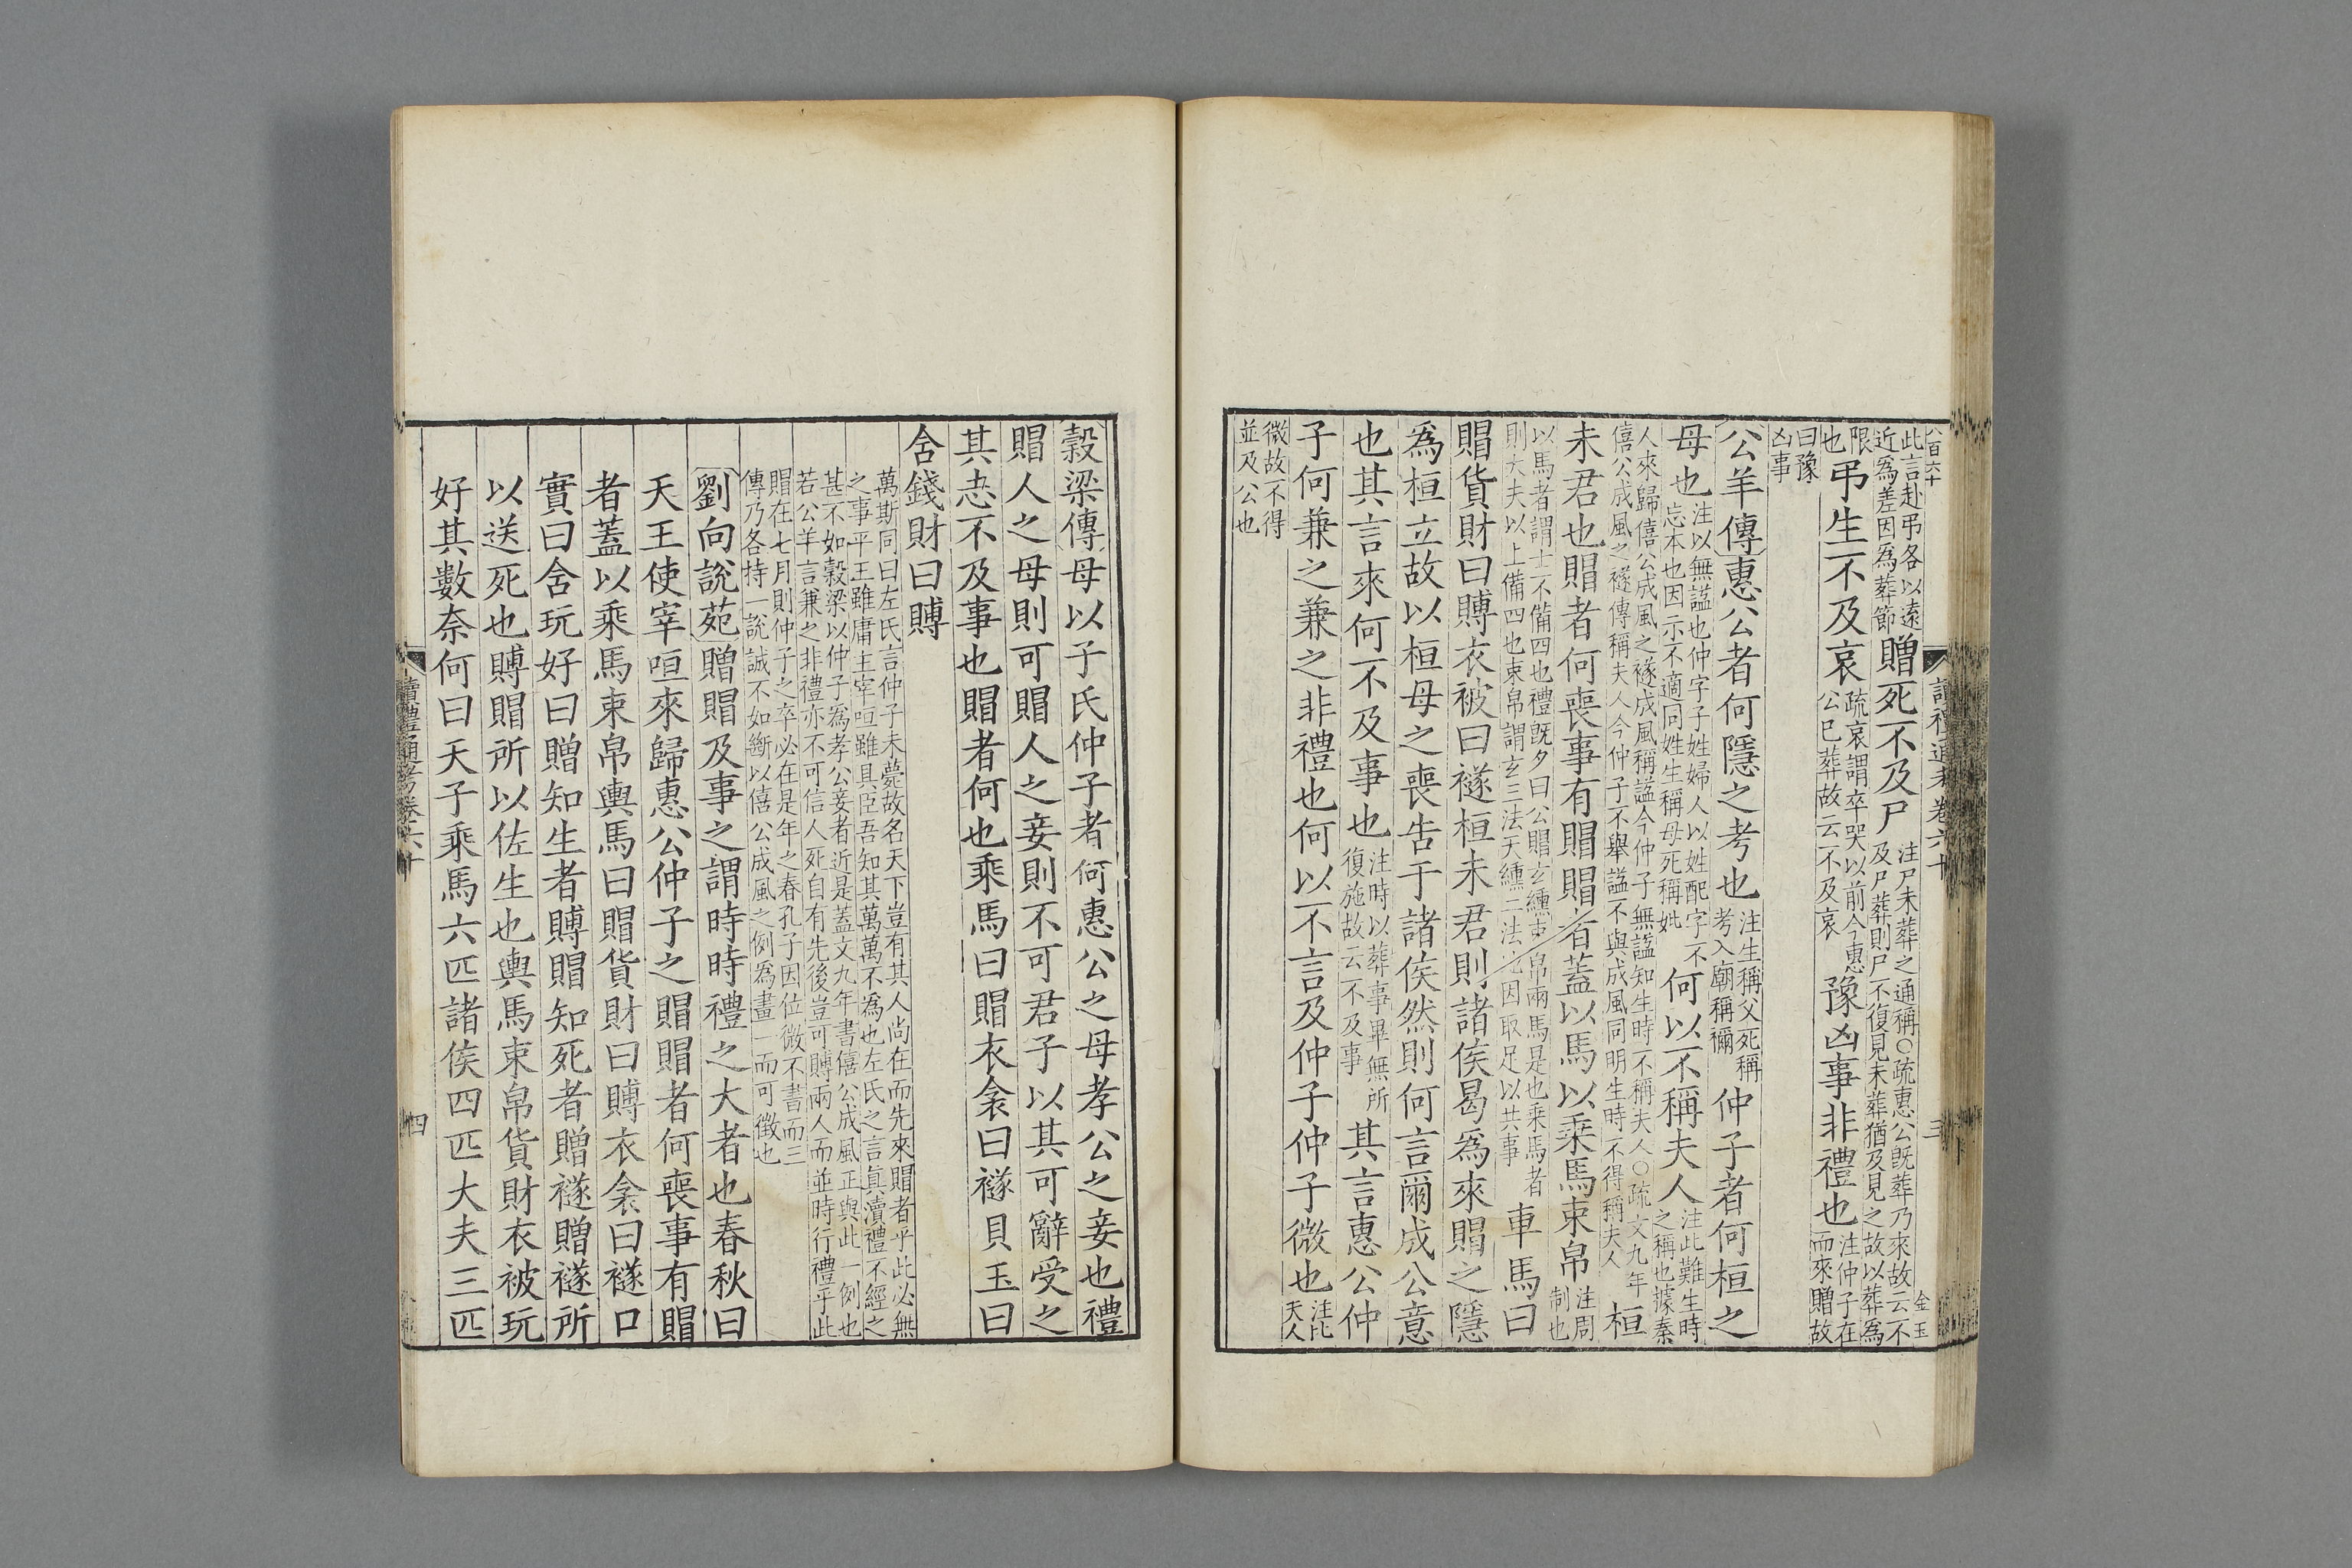 八百六十
讀禮通考卷六十
三
金玉
此言赴弔各以遠
近爲差因爲葬節
贈死不及尸
注尸未葬之通稱○疏惠公既葬乃來故云不
及尸葬則尸不復見未葬猶及見之故以葬爲
限
也
弔生不及哀
疏哀謂卒哭以前今惠
公已葬故云不及哀
豫凶事非禮也
注仲子在
而來贈故
曰豫
凶事
公羊傳惠公者何隱之考也
注生稱父死稱
考入廟稱禰
仲子者何桓之
母也
注以無謚也仲字子姓婦人以姓配字不
忘本也因示不適同姓生稱母死稱妣
何以不稱夫人
注此難生時
之稱也據秦
人來歸僖公成風之襚成風稱謚今仲子無謚知生時不稱夫人○疏文九年
僖公成風之襚傳稱夫人今仲子不舉謚不與成風同明生時不得稱夫人
桓
未君也賵者何喪事有賵賵者蓋以馬以乘馬束帛
注周
制也
以馬者謂士不備四也禮既夕曰公賵玄纁束帛兩馬是也乘馬者
則大夫以上備四也束帛謂玄三法天纁二法地因取足以共事
車馬曰
賵貨財曰賻衣被曰襚桓未君則諸侯曷爲來賵之隱
爲桓立故以桓母之喪告于諸侯然則何言爾成公意
也其言來何不及事也
注時以葬事畢無所
復施故云不及事
其言惠公仲
子何兼之兼之非禮也何以不言及仲子仲子微也
注比
夫人
微故不得
並及公也
穀梁傳母以子氏仲子者何惠公之母孝公之妾也禮
賵人之母則可賵人之妾則不可君子以其可辭受之
其志不及事也賵者何也乘馬曰賵衣衾曰襚貝玉曰
含錢財曰賻
萬斯同曰左氏言仲子未薨故名天下豈有其人尚在而先來賵者乎此必無
之事平王雖庸主宰咺雖具臣吾知其萬萬不爲也左氏之言眞瀆禮不經之
甚不如穀梁以仲子爲孝公妾者近是蓋文九年書僖公成風正與此一例也
若公羊言兼之非禮亦不可信人死自有先後豈可賻兩人而並時行禮乎此
賵在七月則仲子之卒必在是年之春孔子因位微不書而三
傳乃各持一說誠不如斷以僖公成風之例爲畫一而可徵也
劉向說苑贈賵及事之謂時時禮之大者也春秋曰
天王使宰咺來歸惠公仲子之賵賵者何喪事有賵
者蓋以乘馬束帛輿馬曰賵貨財曰賻衣衾曰襚口
實曰含玩好曰贈知生者賻賵知死者贈襚贈襚所
以送死也賻賵所以佐生也輿馬束帛貨財衣被玩
好其數奈何曰天子乘馬六匹諸侯四匹大夫三匹
讀禮通考卷六十
四